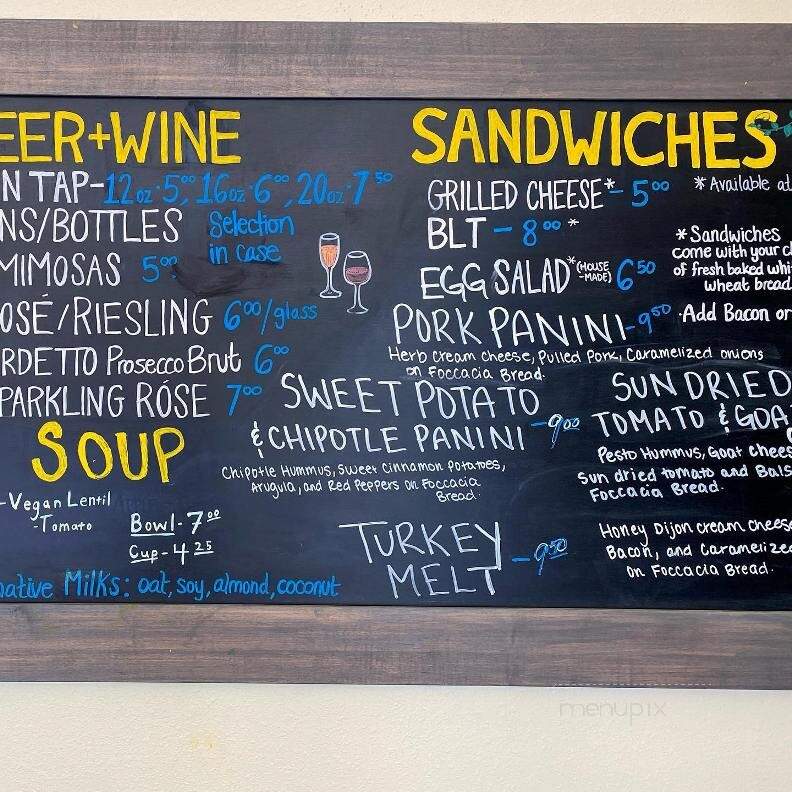 EER+WINE
N TAP-12oz·5⁰⁰, 16oz·6⁰⁰, 20oz·7⁵⁰
NS/BOTTLES Selection
in case
MIMOSAS 5⁰⁰
OSÉ/RIESLING 6⁰⁰/glass
RDETTO Prosecco Brut 6⁰⁰
PARKLING RÓSE 7⁰⁰
SOUP
-Vegan Lentil
-Tomato
Bowl-7⁰⁰
Cup-4²⁵
native Milks: oat, soy, almond, coconut
SANDWICHES
GRILLED CHEESE*-5⁰⁰
*Available at
BLT-8⁰⁰*
EGG SALAD*(HOUSE-MADE) 6⁵⁰
*Sandwiches
come with your ch
of fresh baked whi
wheat bread
PORK PANINI-9⁵⁰
·Add Bacon or
Herb cream cheese, Pulled Pork, Caramelized onions
on Foccacia Bread.
SWEET POTATO
& CHIPOTLE PANINI-9⁰⁰
Chipotle Hummus, Sweet Cinnamon Potatoes,
Arugula, and Red Peppers on Foccacia
Bread.
SUN DRIED
TOMATO & GOA
Pesto Hummus, Goat chees
Sun dried tomato and Bals
Foccacia Bread.
TURKEY
MELT-9⁵⁰
Honey Dijon cream cheese
Bacon, and Caramelize
on Foccacia Bread.
menupix